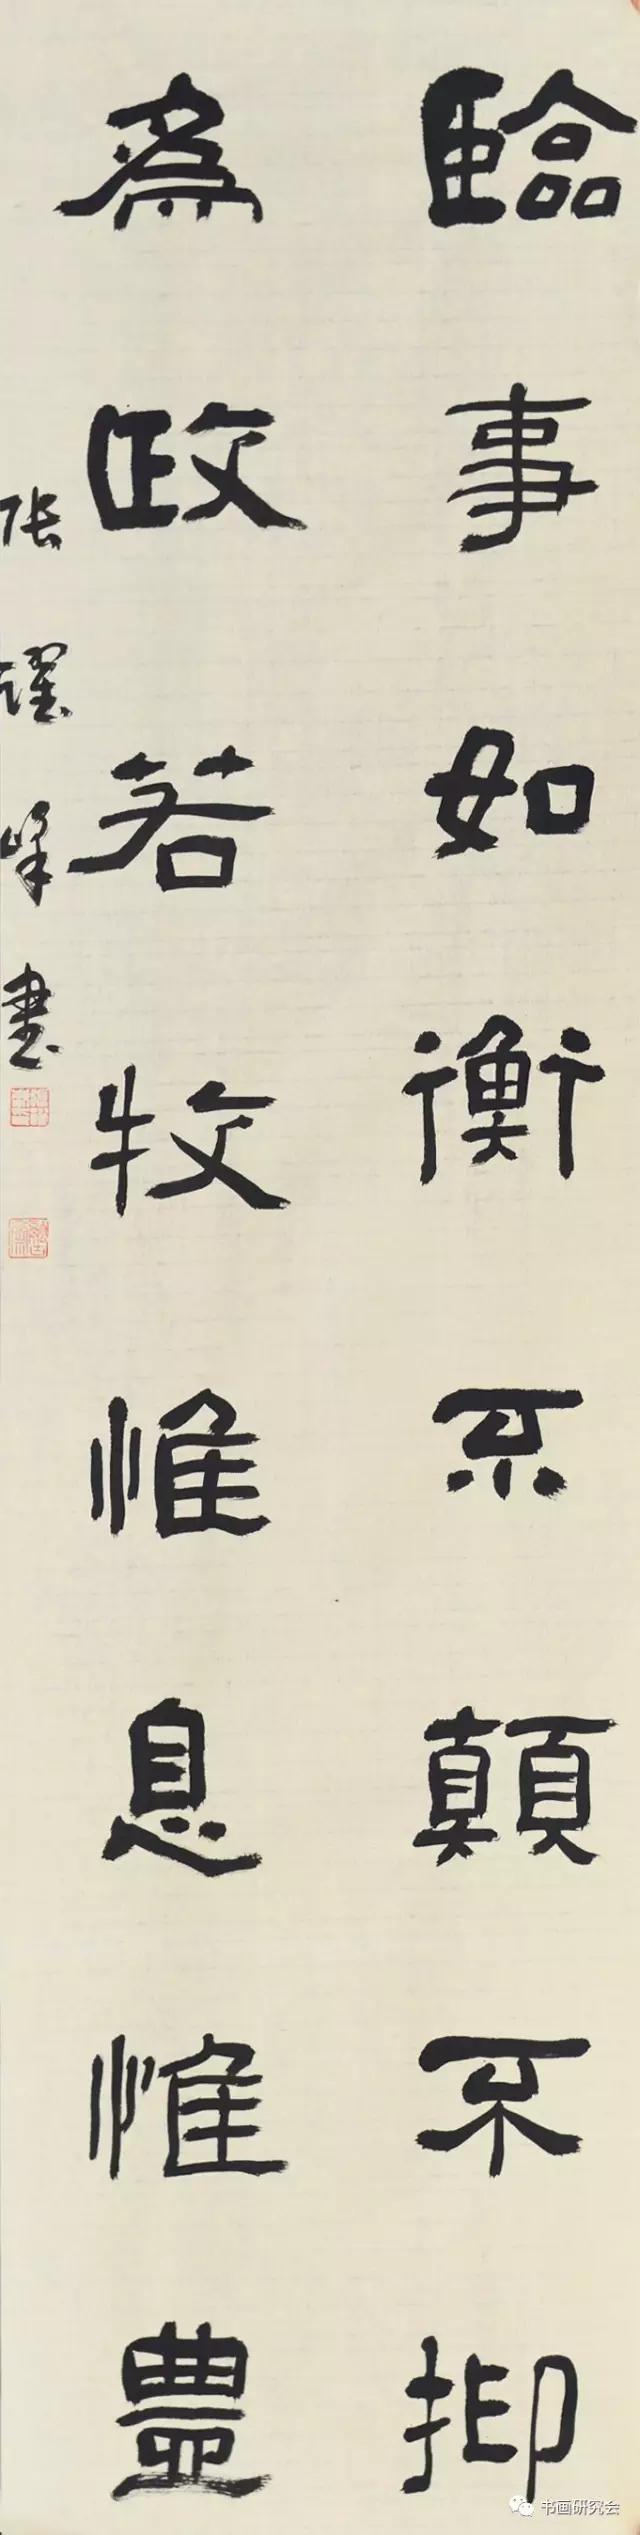 臨事如衡不顛不抑
為政若牧惟息惟豊
张躍峰書
书画研究会